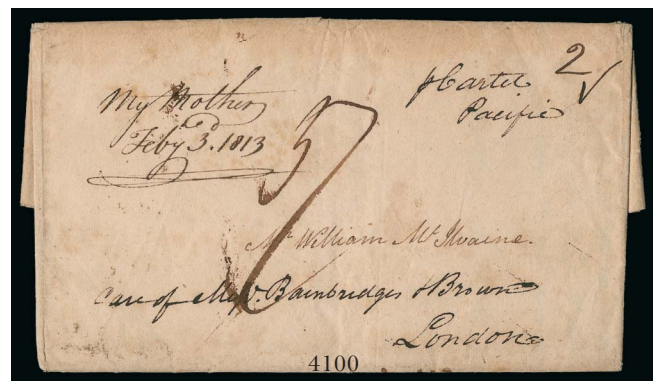 2
My Mother
Feby 3d. 1813
p Cartel
Pacific
Mr William McIlvaine.
Care of Messrs. Bainbridges & Brown
London
4100